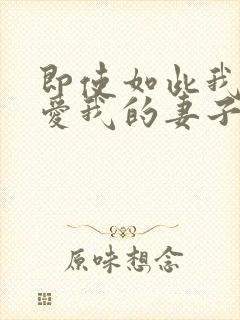 即使如此我
爱我的妻子
原味想念